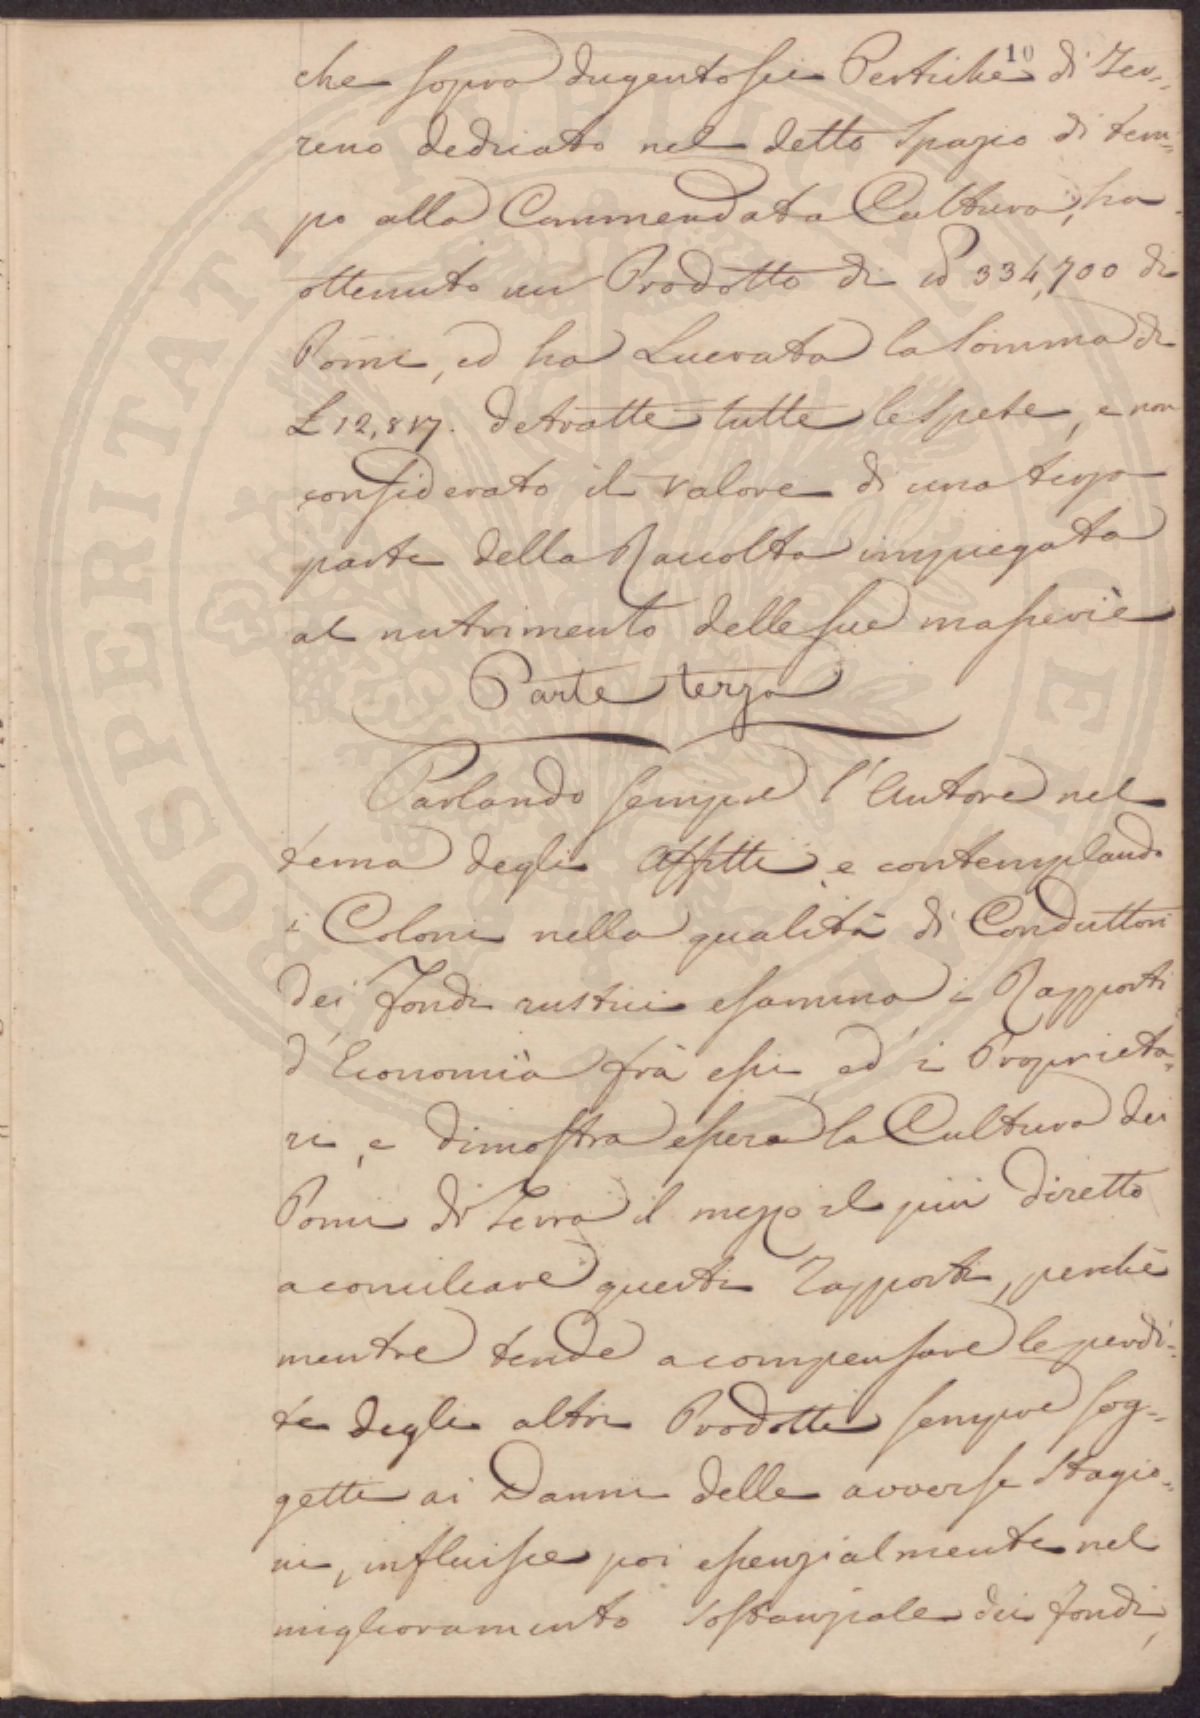 10
che sopra dugentosei Pertiche di Ter=
reno dedicato nel detto Spazio di tem=
po alla Commendata Cultura, ha
ottenuto un Prodotto di 334,700 di
Pomi, ed ha Lucrata la Somma di
£ 12,817. detratte tutte le Spese, e non
considerato il valore di una terza
parte della Raccolta impiegata
al nutrimento delle sue masserie
Parte terza
Parlando sempre l'Autore nel
tema degli Affitti, e contemplando
i Coloni nella qualità di Conduttori
dei Fondi rustici esamina i Rapporti
d'Economia frà essi, ed i Proprieta=
ri, e dimostra essere la Cultura dei
Pomi di Terra il mezzo il più diretto
a conciliare questi rapporti, perchè
mentre tende a compensare le perdi=
te degli altri Prodotti sempre sog=
getti ai Danni delle avverse Stagio=
ni, influisce poi essenzialmente nel
miglioramento Sostanziale dei fondi,
PROSPERITATI PUBLICAE AUGENDAE